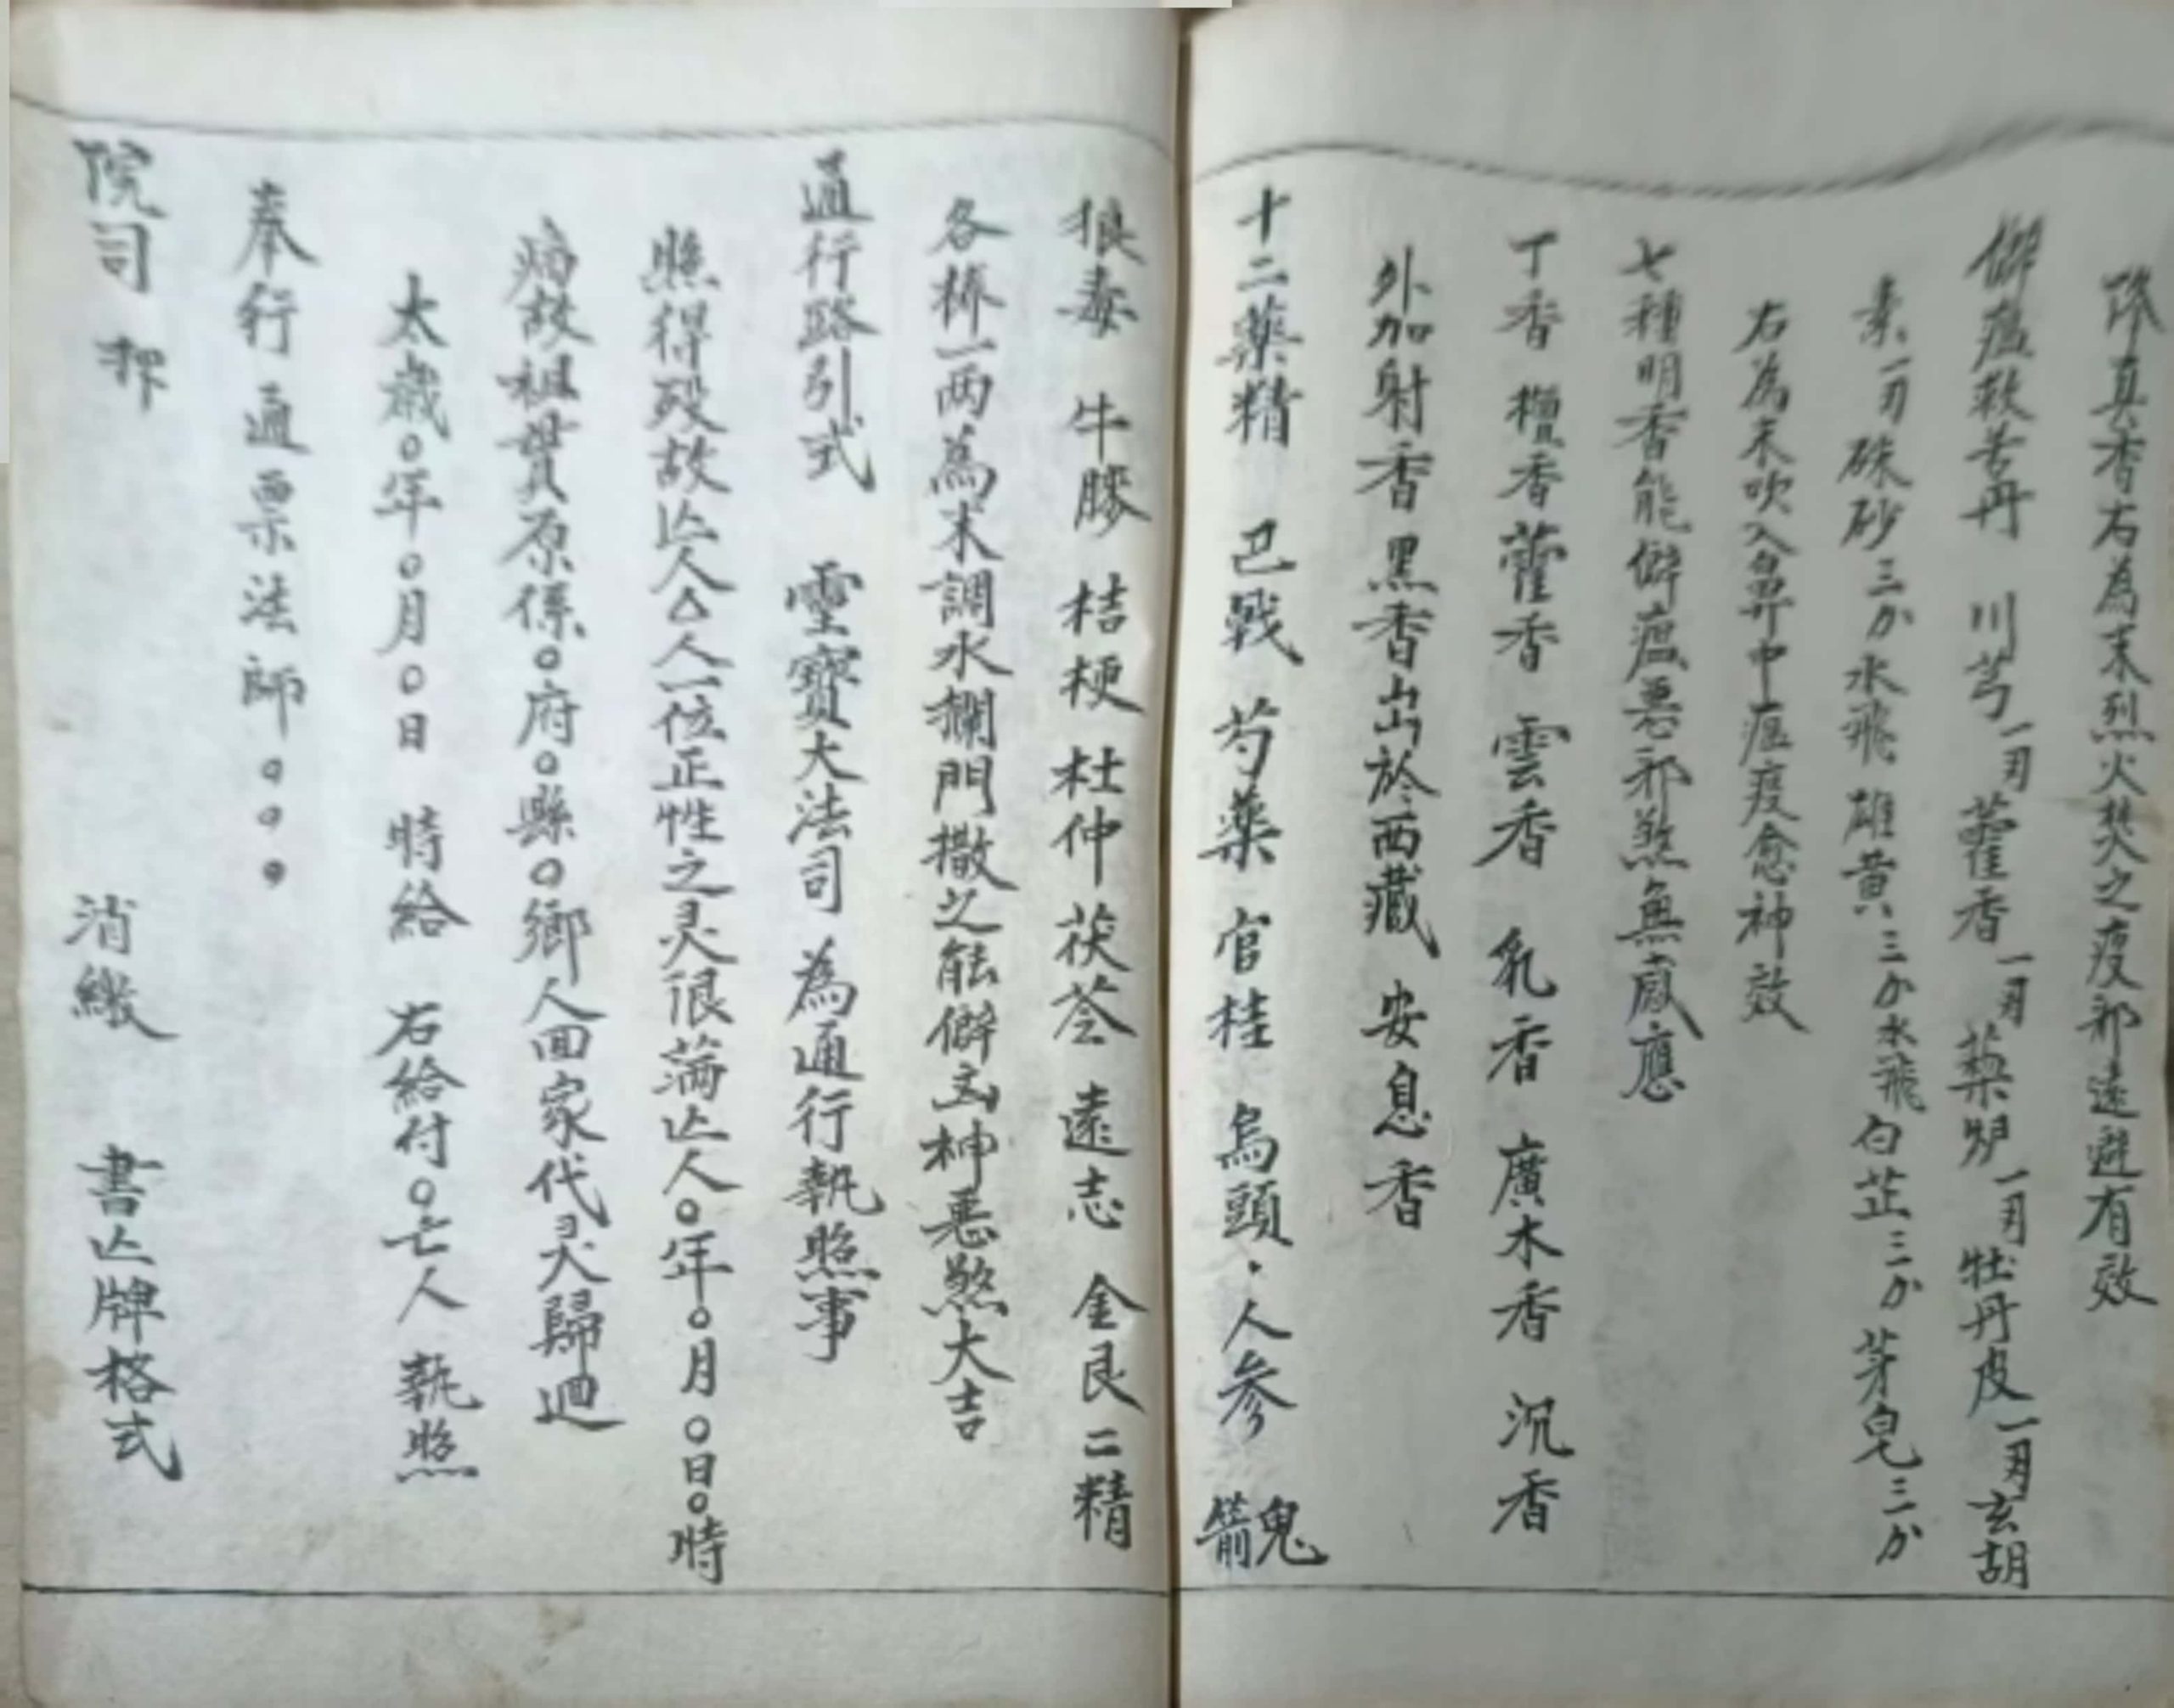 降真香右為末烈火焚之疫邪遠避有效
僻瘟救苦丹 川芎一刃藿香一刃藜炉一刃牡丹皮一刃玄胡
素一刃硃砂三分水飛雄黃三分水飛白芷三分芽皂三分
右為末吹入鼻中瘟疫愈神效
七種明香能僻瘟悪邪煞無感應
丁香 檀香 藿香 雲香 乳香 廣木香 沉香
外加射香黑香出於西藏 安息香
十二藥精 巴戟 芍藥 官桂 烏頭·人参 鬼箭
狼毒 牛膠 桔梗 杜仲 茯苓 遠志 金艮二精
各捀一兩為末調水攔門撒之能僻凶神悪煞大吉
通行路引式 靈寶大法司為通行執照事
照得殁故亾人△人一位正性之灵限滿亾人○年○月○日○時
病故祖貫原係○府○縣○鄉人回家代灵歸迴
太歲○年○月○日 特給 右給付○亡人 執照
奉行通票法師○○○
院司 押 消繳 書亾牌格式